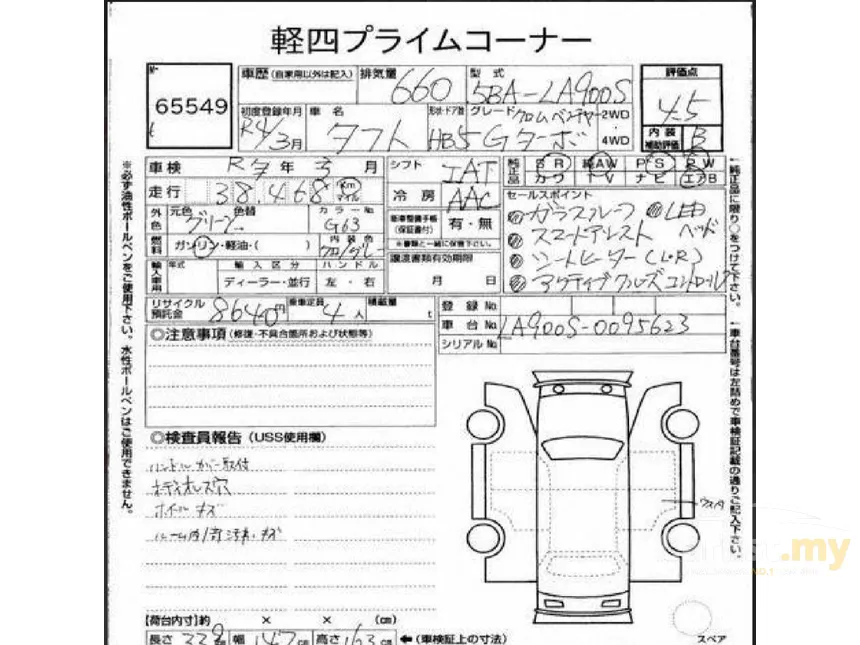 軽四プライムコーナー
No 65549
車歴 (自家用以外は記入) 排気量 660 型式 5BA-LA900S
評価点 4.5
初度登録年月 R4/3月 車名 タフト 形状・ドア数 HB5 グレード クロムベンチャー Gターボ 2WD 4WD
内装補助評価 B
車検 R 年 3月
シフト IAT
純正品 SR 純AW PS PW
カワ TV ナビ エアB
走行 38.468 Km マイル
冷房 AAC
セールスポイント
ガラスルーフ LED ヘッド
スマートアシスト
シートヒーター (L・R)
アクティブクルーズコントロール
外色 元色 グリーン 色替 カラーNo. G63
車両整備手帳 (保証書付) 有・無
※書類と一緒に保管下さい。
燃料 ガソリン・軽油・( ) 内装色 クロ/グレー
譲渡書類有効期限
月 日
輸入車用 年式 輸入区分 ハンドル
ディーラー・並行 左・右
リサイクル預託金 8640円 乗車定員 4人 積載量 t
登録No.
車台No. LA900S-0095623
シリアルNo.
◎注意事項 (修復・不具合箇所および状態等)
◎検査員報告 (USS使用欄)
ハンドルカバー取付
ボディオレズ穴
ホイールキズ
ルーム内
キズ
【荷台内寸】約 × × (cm)
長さ 339cm 幅 147cm 高さ 163cm ←(車検証上の寸法)
スペア
※必ず油性ボールペンをご使用下さい。水性ボールペンはご使用できません。
純正品に限り○をつけて下さい。
車台番号は左詰めで車検証記載の通りご記入下さい。
.my